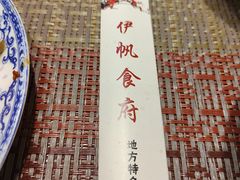 伊帆食府
地方特